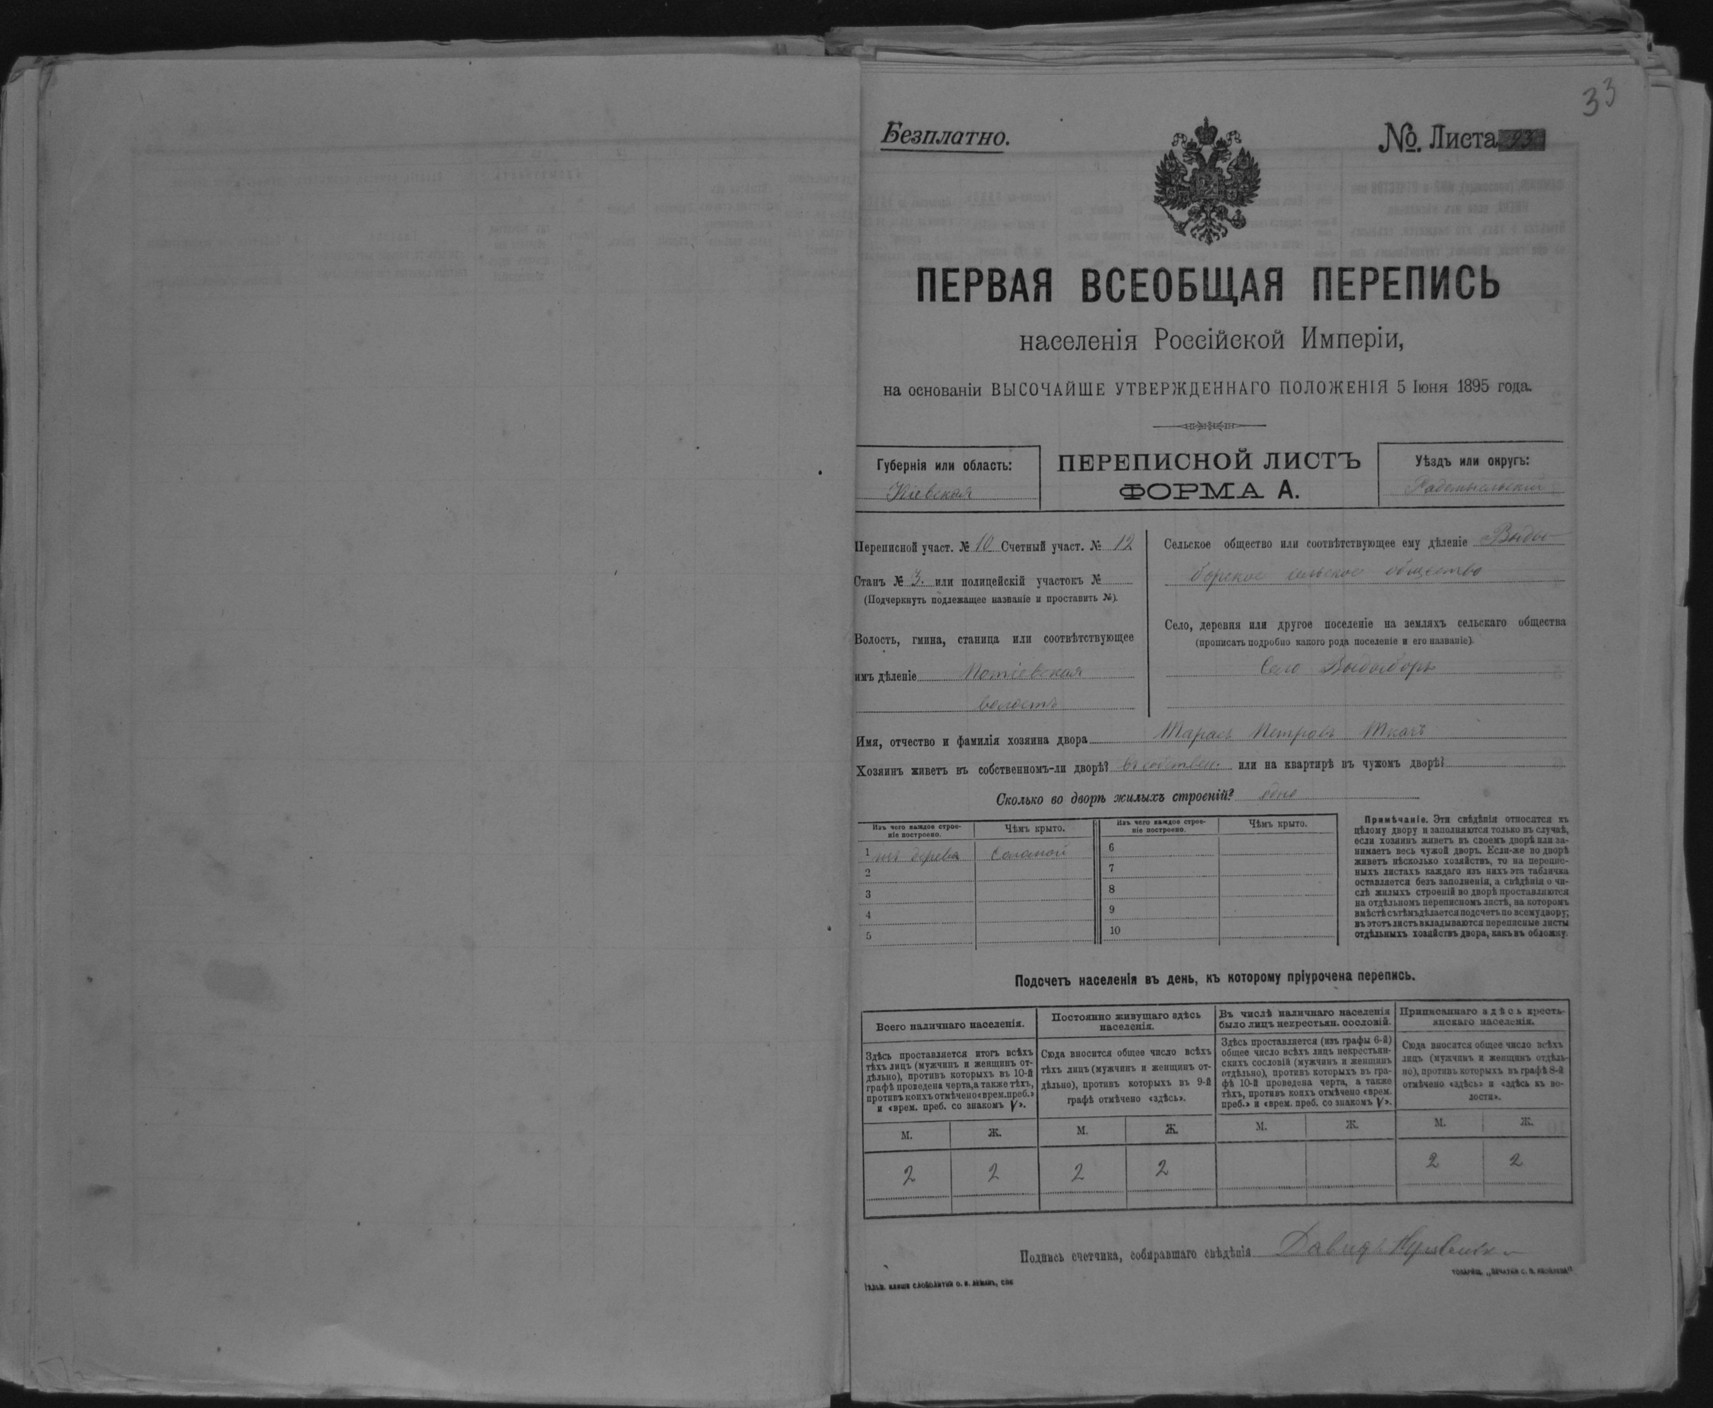 33
Безплатно.
№ Листа 23
ПЕРВАЯ ВСЕОБЩАЯ ПЕРЕПИСЬ
населенія Россійской Имперіи,
на основаніи ВЫСОЧАЙШЕ УТВЕРЖДЕННАГО ПОЛОЖЕНІЯ 5 Іюня 1895 года.
Губернія или область:
Кіевская
ПЕРЕПИСНОЙ ЛИСТЪ
ФОРМА А.
Уѣздъ или округъ:
Радомысльскій
Переписной участ. № 10 Счетный участ. № 12
Станъ № 3. или полицейскій участокъ №
(Подчеркнуть подлежащее названіе и проставить №).
Волость, гмина, станица или соотвѣтствующее
имъ дѣленіе Потіевская
волость
Сельское общество или соотвѣтствующее ему дѣленіе Выды-
борское сельское общество
Село, деревня или другое поселеніе на земляхъ сельскаго общества
(прописать подробно какого рода поселеніе и его названіе).
Село Выдыборъ
Имя, отчество и фамилія хозяина двора Тарасъ Петровъ Ткачъ
Хозяинъ живетъ въ собственномъ-ли дворѣ? въ собствен. или на квартирѣ въ чужомъ дворѣ?
Сколько во дворѣ жилыхъ строеній? одно
Изъ чего каждое строе-
ніе построено.
Чѣмъ крыто.
Изъ чего каждое строе-
ніе построено.
Чѣмъ крыто.
1 изъ дерева соломой
2
3
4
5
6
7
8
9
10
Примѣчаніе. Эти свѣдѣнія относятся къ
цѣлому двору и заполняются только въ случаѣ,
если хозяинъ живетъ въ своемъ дворѣ или за-
нимаетъ весь чужой дворъ. Если-же во дворѣ
живетъ нѣсколько хозяйствъ, то на перепис-
ныхъ листахъ каждаго изъ нихъ эта табличка
оставляется безъ заполненія, а свѣдѣнія о чи-
слѣ жилыхъ строеній во дворѣ проставляются
на отдѣльномъ переписномъ листѣ, на которомъ
вмѣстѣ съ тѣмъ дѣлается подсчетъ по всему двору;
въ этотъ листъ вкладываются переписные листы
отдѣльныхъ хозяйствъ двора, какъ въ обложку.
Подсчетъ населенія въ день, къ которому пріурочена перепись.
Всего наличнаго населенія.
Здѣсь проставляется итогъ всѣхъ
тѣхъ лицъ (мужчинъ и женщинъ от-
дѣльно), противъ которыхъ въ 10-й
графѣ проведена черта, а также тѣхъ,
противъ коихъ отмѣчено «врем. преб.»
и «врем. преб. со знакомъ V».
Постоянно живущаго здѣсь
населенія.
Сюда вносится общее число всѣхъ
тѣхъ лицъ (мужчинъ и женщинъ от-
дѣльно), противъ которыхъ въ 9-й
графѣ отмѣчено «здѣсь».
Въ числѣ наличнаго населенія
было лицъ некрестьян. сословій.
Здѣсь проставляется (изъ графы 6-й)
общее число всѣхъ лицъ некрестьян-
скихъ сословій (мужчинъ и женщинъ
отдѣльно), противъ которыхъ въ гра-
фѣ 10-й проведена черта, а также
тѣхъ, противъ коихъ отмѣчено «врем.
преб.» и «врем. преб. со знакомъ V».
Приписаннаго здѣсь кресть-
янскаго населенія.
Сюда вносится общее число всѣхъ
лицъ (мужчинъ и женщинъ отдѣль-
но), противъ которыхъ въ графѣ 8-й
отмѣчено «здѣсь» и «здѣсь къ во-
лости».
М. Ж. М. Ж. М. Ж. М. Ж.
2 2 2 2 2 2
Подпись счетчика, собиравшаго свѣдѣнія Давидъ